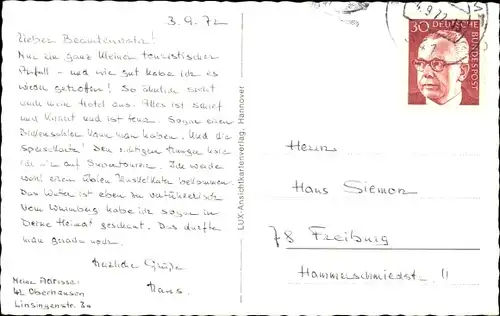 3.9.72
Lieber Beamtenvater!
Nur ein ganz kleiner touristischer
Anfall - und wie gut habe ich es
wieder getroffen! So ähnlich sieht
auch mein Hotel aus. Alles ist schief
und krumm und ist teuer. Sogar einen
kann man haben. Und die
Speisekarte! Den richtigen Hunger hole
ich mir auf Supertouren. Ich werde
wohl einen üblen Muskelkater bekommen.
Das Wetter ist eben zu verführerisch
Vom Wurmberg habe ich sogar in
Deine Heimat geschaut. Das durfte
man gerade noch.
Herzliche Grüße
Hans.
Meine Adresse:
42 Oberhausen
Linsingenstr.
LUX-Ansichtkartenverlag, Hannover
4.9.72
30 DEUTSCHE BUNDESPOST
Herrn
Hans Siemon
78 Freiburg
Hammerschmiedstr. 11